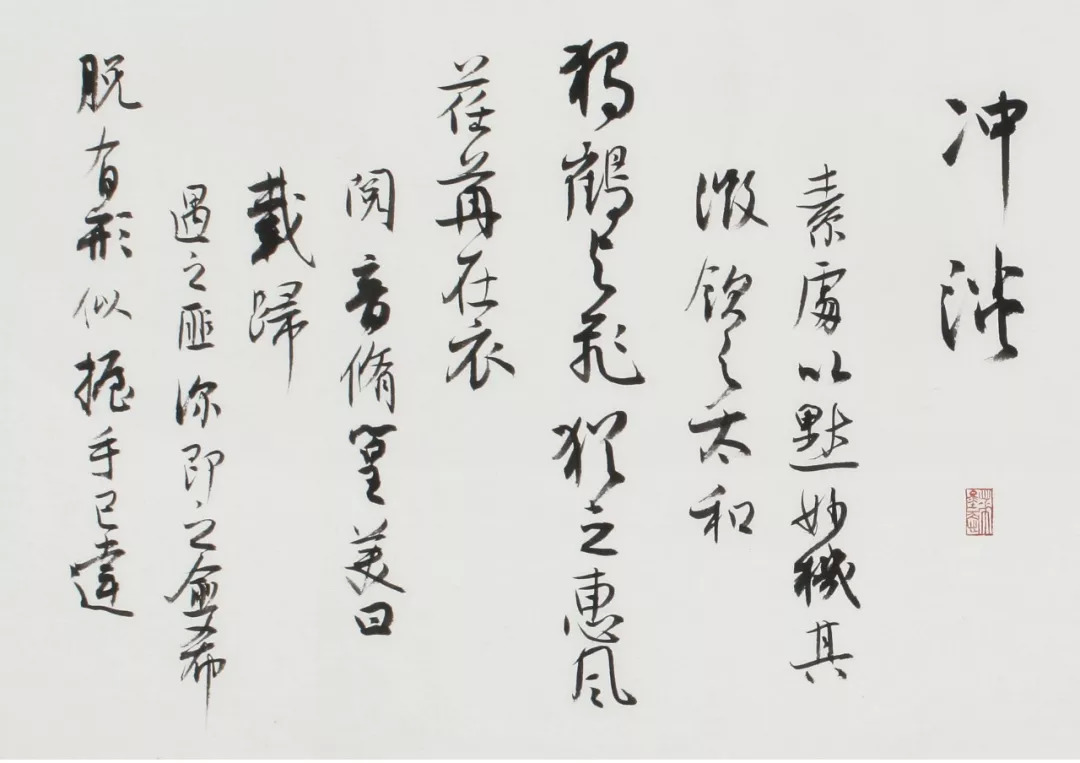 冲淡
素處以默妙機其
微飲之太和
獨鶴与飛猶之惠風
荏苒在衣
閱音脩篁美曰
載歸
遇之匪深即之愈希
脱有形似握手已違